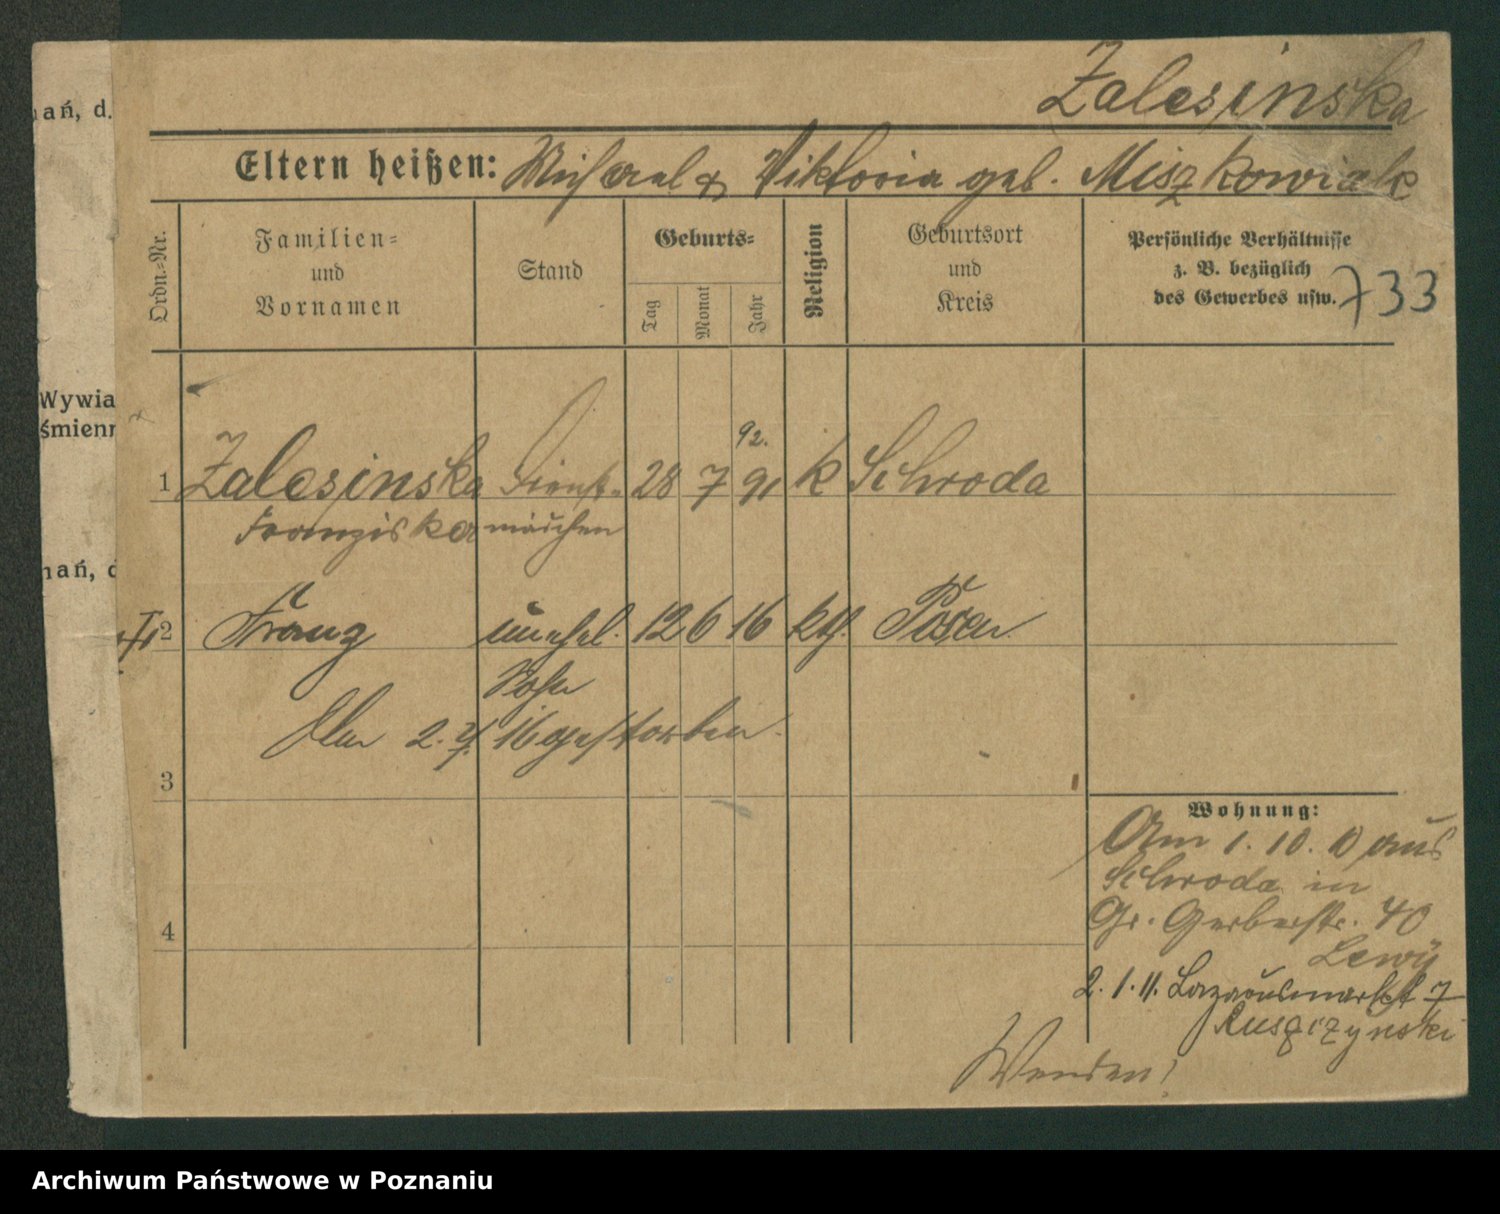 Zalesinska
nań, d.
Eltern heißen: Michael & Viktoria geb. Miszkowiak
Ordn.-Nr.
Familien-
und
Vornamen
Stand
Geburts-
Tag
Monat
Jahr
Religion
Geburtsort
und
Kreis
Persönliche Verhältnisse
z. B. bezüglich
des Gewerbes usw.
733
Wywia
śmienn
92.
1 Zalesinska Dienst- 28 7 91 k Schroda
Franziska mädchen
nań, d
2 Franz unehel. 12 6 16 kth. Posen
Sohn
Am 2. 7. 16 gestorben.
3
Wohnung:
Am 1. 10. 10 aus
Schroda in
4
Gr. Gerberstr. 40
Lewy
2. 1. 11. Lazarusmarkt 7
Wenden!
Archiwum Państwowe w Poznaniu